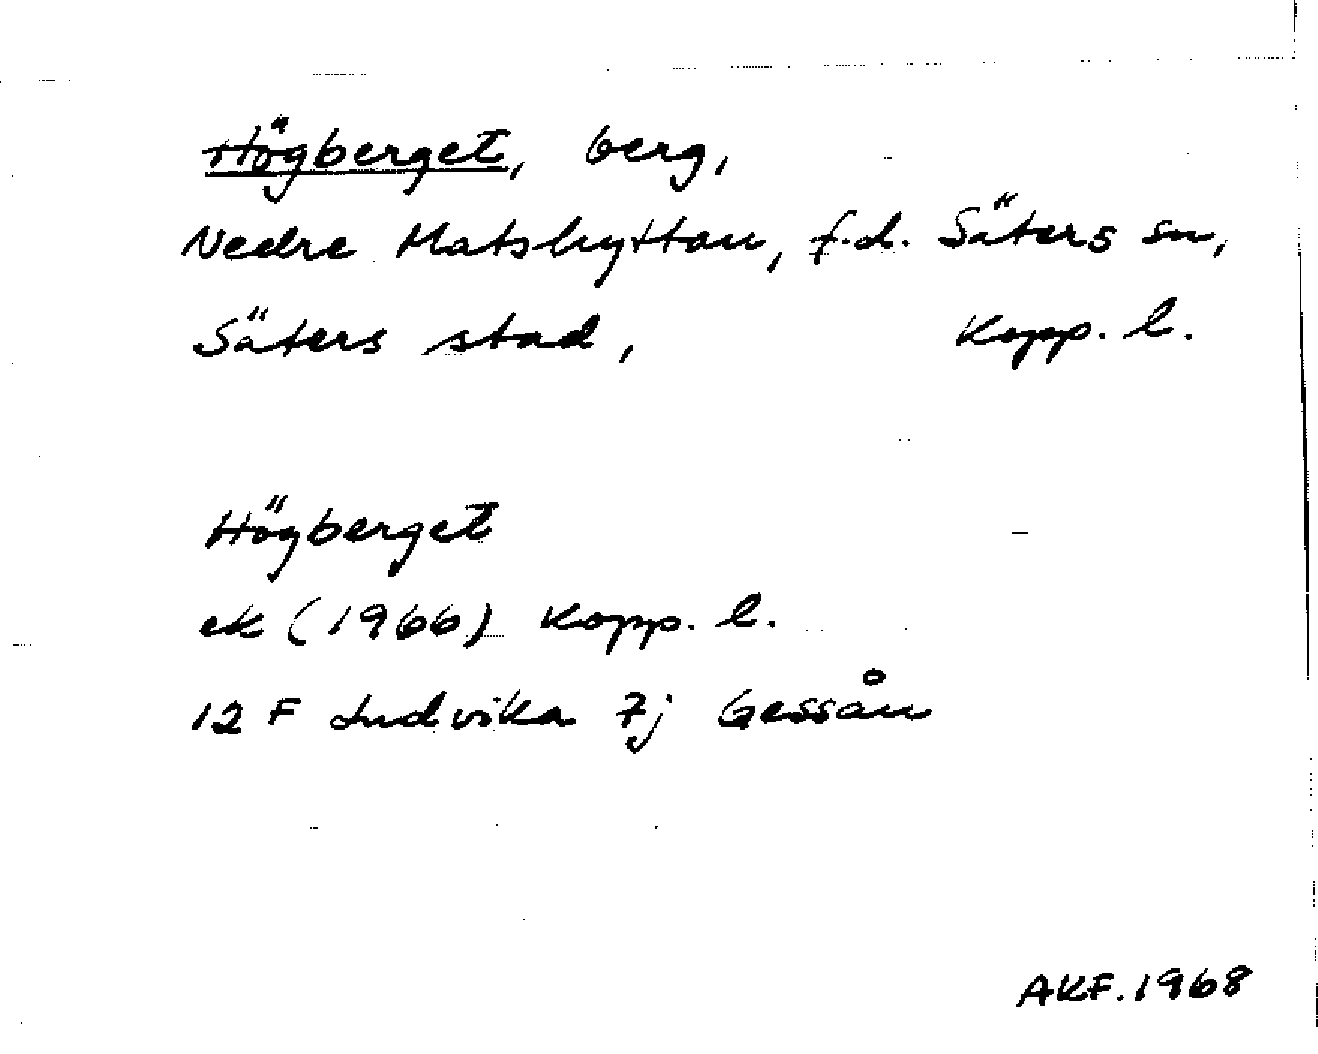 Högberget, berg,
Nedre Matshyttan, f.d. Säters sn,
Säters stad, Kopp. l.
Högberget
ek (1966) Kopp. l.
12 F Ludvika 7j Gessån
AKF. 1968